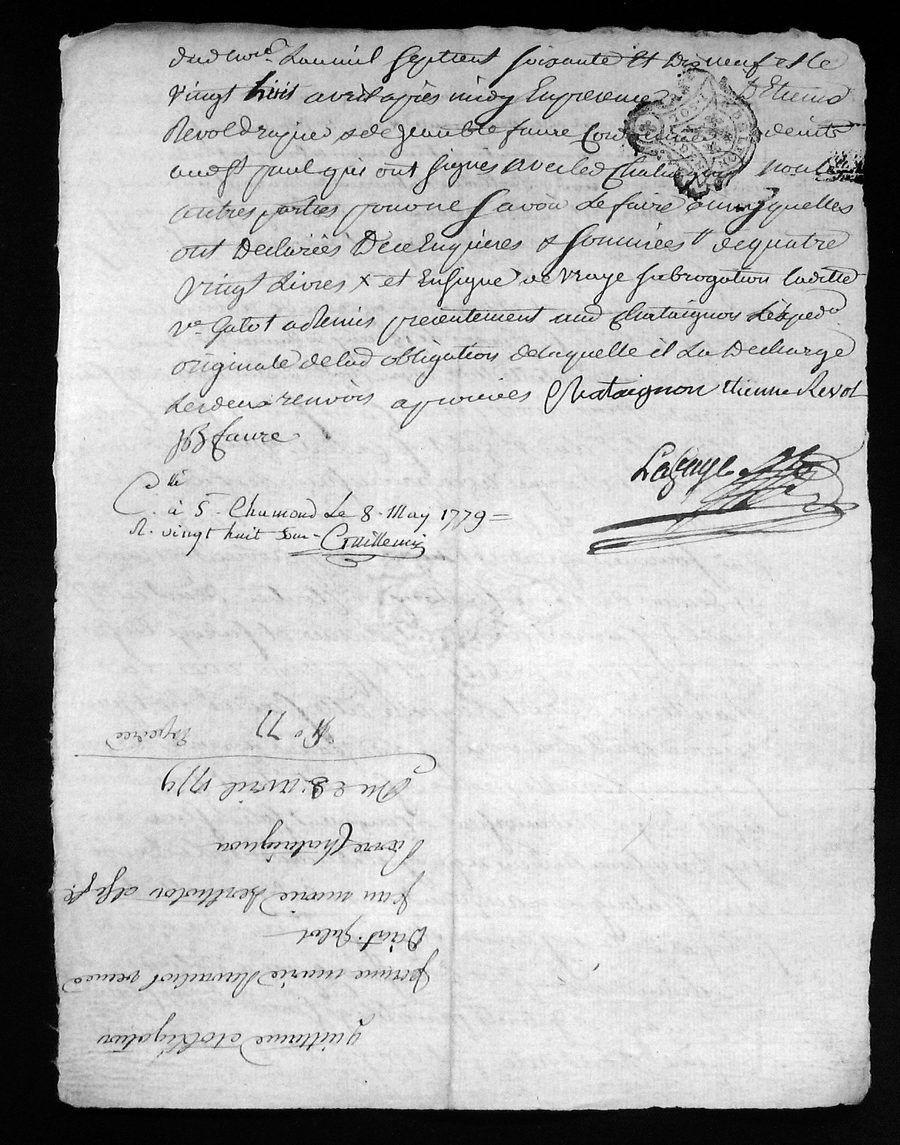 dud no.re Lan mil Sept cent Soixante Et Dix neuf et le
vingt trois avril apres midy En presence d'Etienne
Revol dragne & de Jean bte faure Cord
aud st paul qui ont Signés avec led Chataignon non les
autres parties pour ne Savoir Le faire ainsy quelles
ont Declarées De ce Enquieres & Sommées de quatre
vingt Livres x et En signe de vraye Subrogation laditte
ve. Galot a Remis presentement aud Chataignon L'exped.on
originale de lad obligation de laquelle il La Decharge
Les deux renvois aprouvés Chataignon Etienne Revol
JB faure
Lafaye
C. lé
à St. Chamond Le 8. May 1779 =
R. vingt huit Sous
quittance et obligation
Jeanne marie veuve
Galot
Jean marie Bertholon
Pierre Chataignon
Du 23 avril 1779
No 77 Expediée